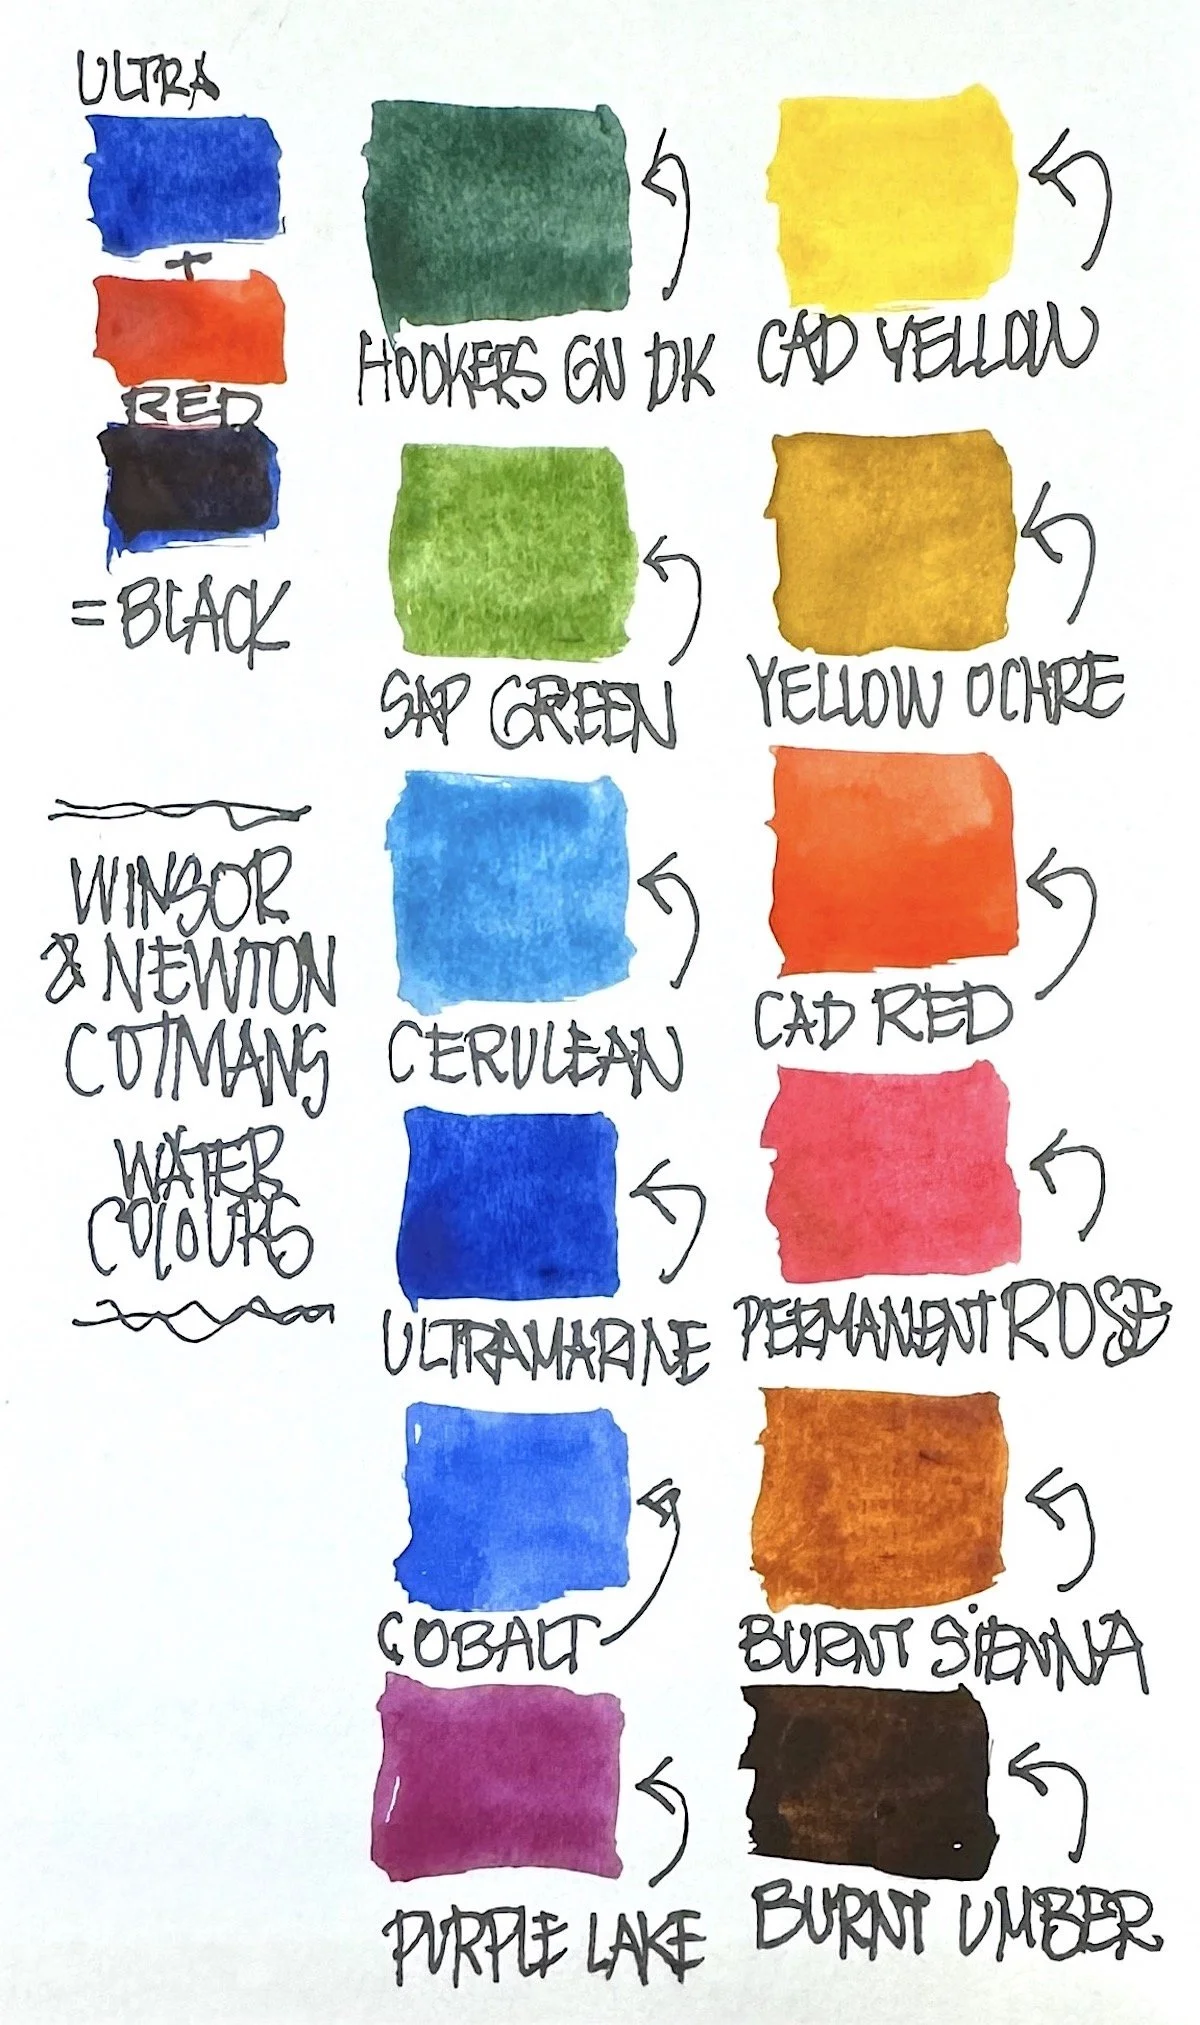 ULTRA
+
RED
= BLACK
WINSOR
& NEWTON
COTMANS
WATER
COLOURS
HOOKERS GN DK
SAP GREEN
CERULEAN
ULTRAMARINE
COBALT
PURPLE LAKE
CAD YELLOW
YELLOW OCHRE
CAD RED
PERMANENT ROSE
BURNT SiENNA
BURNT UMBER